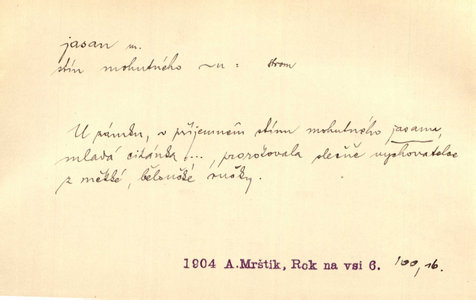 jasan m.
stín mohutného ~u: strom
U zámku, v příjemném stínu mohutného jasanu,
mladá cikánka ..., prorokovala slečně vychovatelce
z měkké, běloučké ručky.
1904 A.Mrštík, Rok na vsi 6. 100, 16.